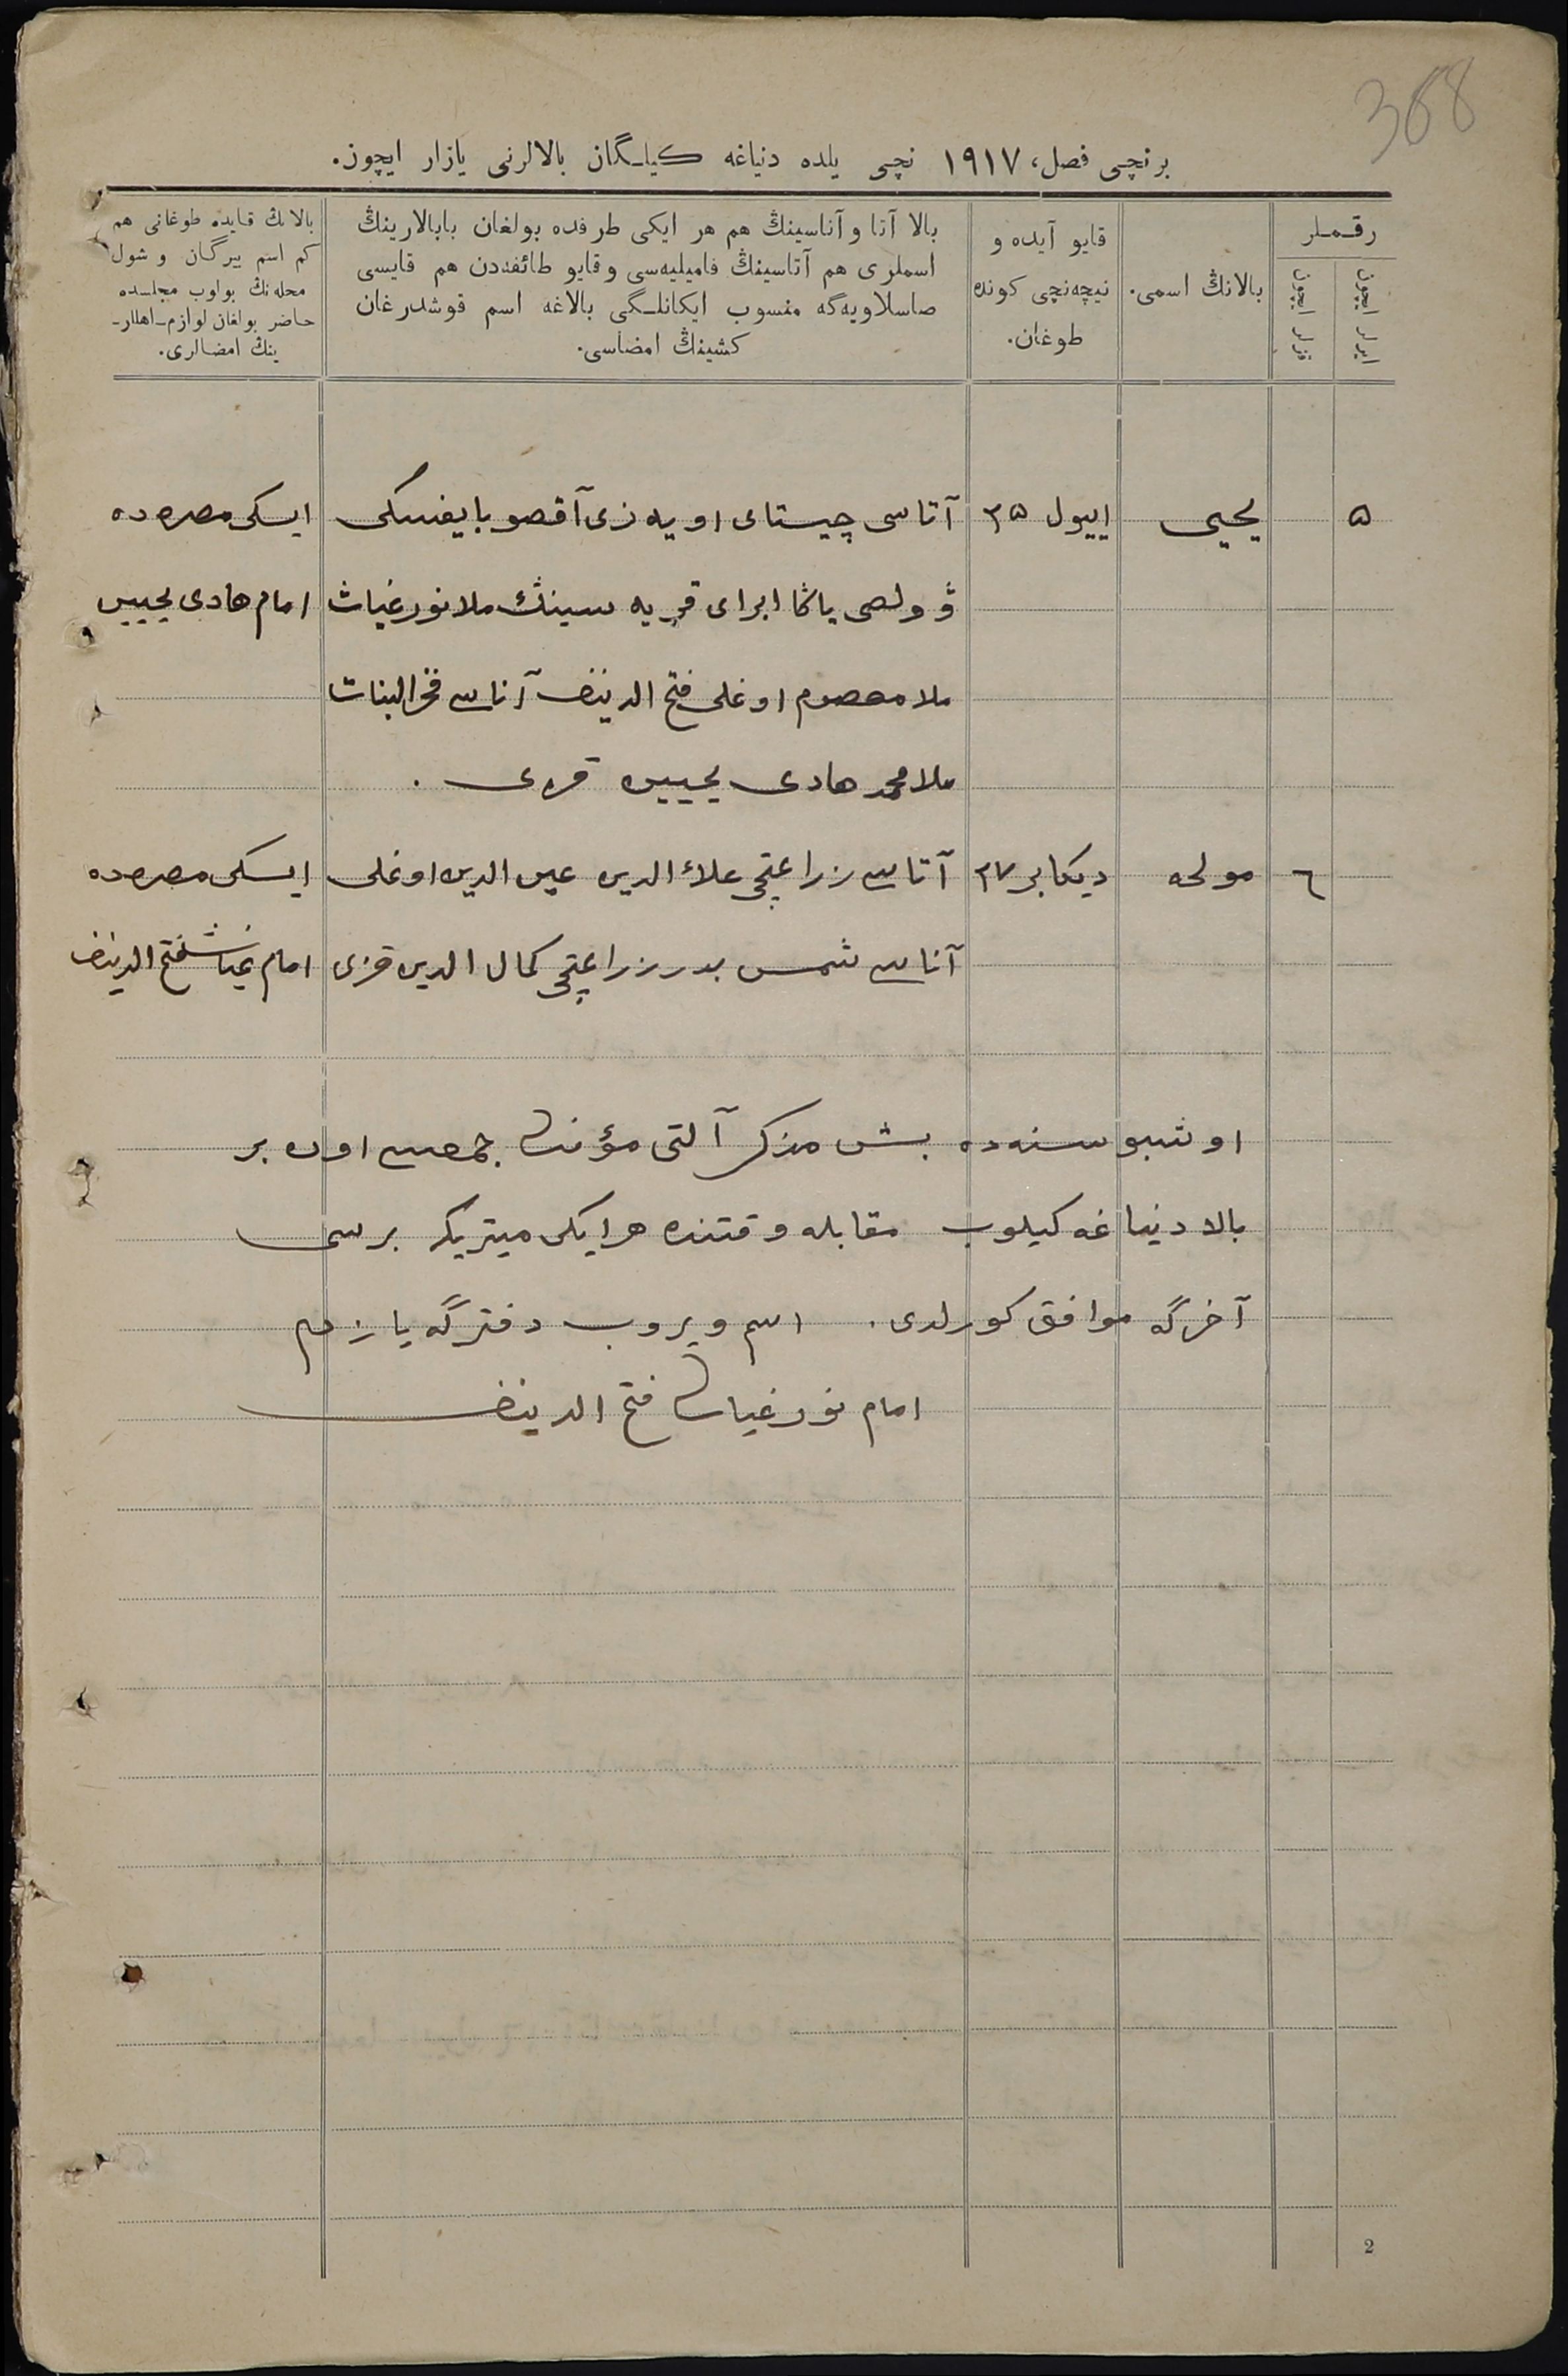 368
برنچی فصل، ١٩١٧ نچی یلده دنیاغه کیلـگان بالالرنی یازار ایچون.
رقـملر
ایرلر ایچون
قزلر ایچون
بالانڭ اسمی.
قایو آیده و
نیچه‌نچی کونده
طوغان.
بالا آتا و آناسینڭ هم هر ایکی طرفده بولغان بابالارینڭ
اسملری هم آتاسینڭ فامیلیه‌سی و قایو طائفه‌دن هم قایسی
صاسلاویه‌گه منسوب ایکانلـگی بالاغه اسم قوشدرغان
کشینڭ امضاسی.
بالانڭ قایده طوغانی هم
کم اسم بیرگان و شول
محله‌نڭ بولوب مجلسده
حاضر بولغان لوازم اهللر-
ینڭ امضالری.
۵ یحیی اییول ٢۵ آتاسی چیستای اویه‌زی آقصوبایفسکی ایسکی مصرده
ڤولصی یاڭا ابرای قریه سینڭ ملا نورغیاث امام هادی یحیین
ملا معصوم اوغلی فتح الدینف آناسی فخرالبنات
ملا محمد هادی یحیین قزی .
٦ مولحه دیکابر ٢٧ آتاسی زراعتچی علاءالدین عین الدین اوغلی ایسکی مصرده
آناسی شمس بدر زراعتچی کمال الدین قزی امام غیاث فتح الدینف
اوشبو سنه‌ده بش مذکر آلتی مؤنث جمعسی اون بر
بالا دنیاغه کیلوب مقابله وقتنده هر ایکی میتریکه برسی
آخرگه موافق کورلدی. اسم ویروب دفترگه یازدم
امام نورغیاث فتح الدینف
2